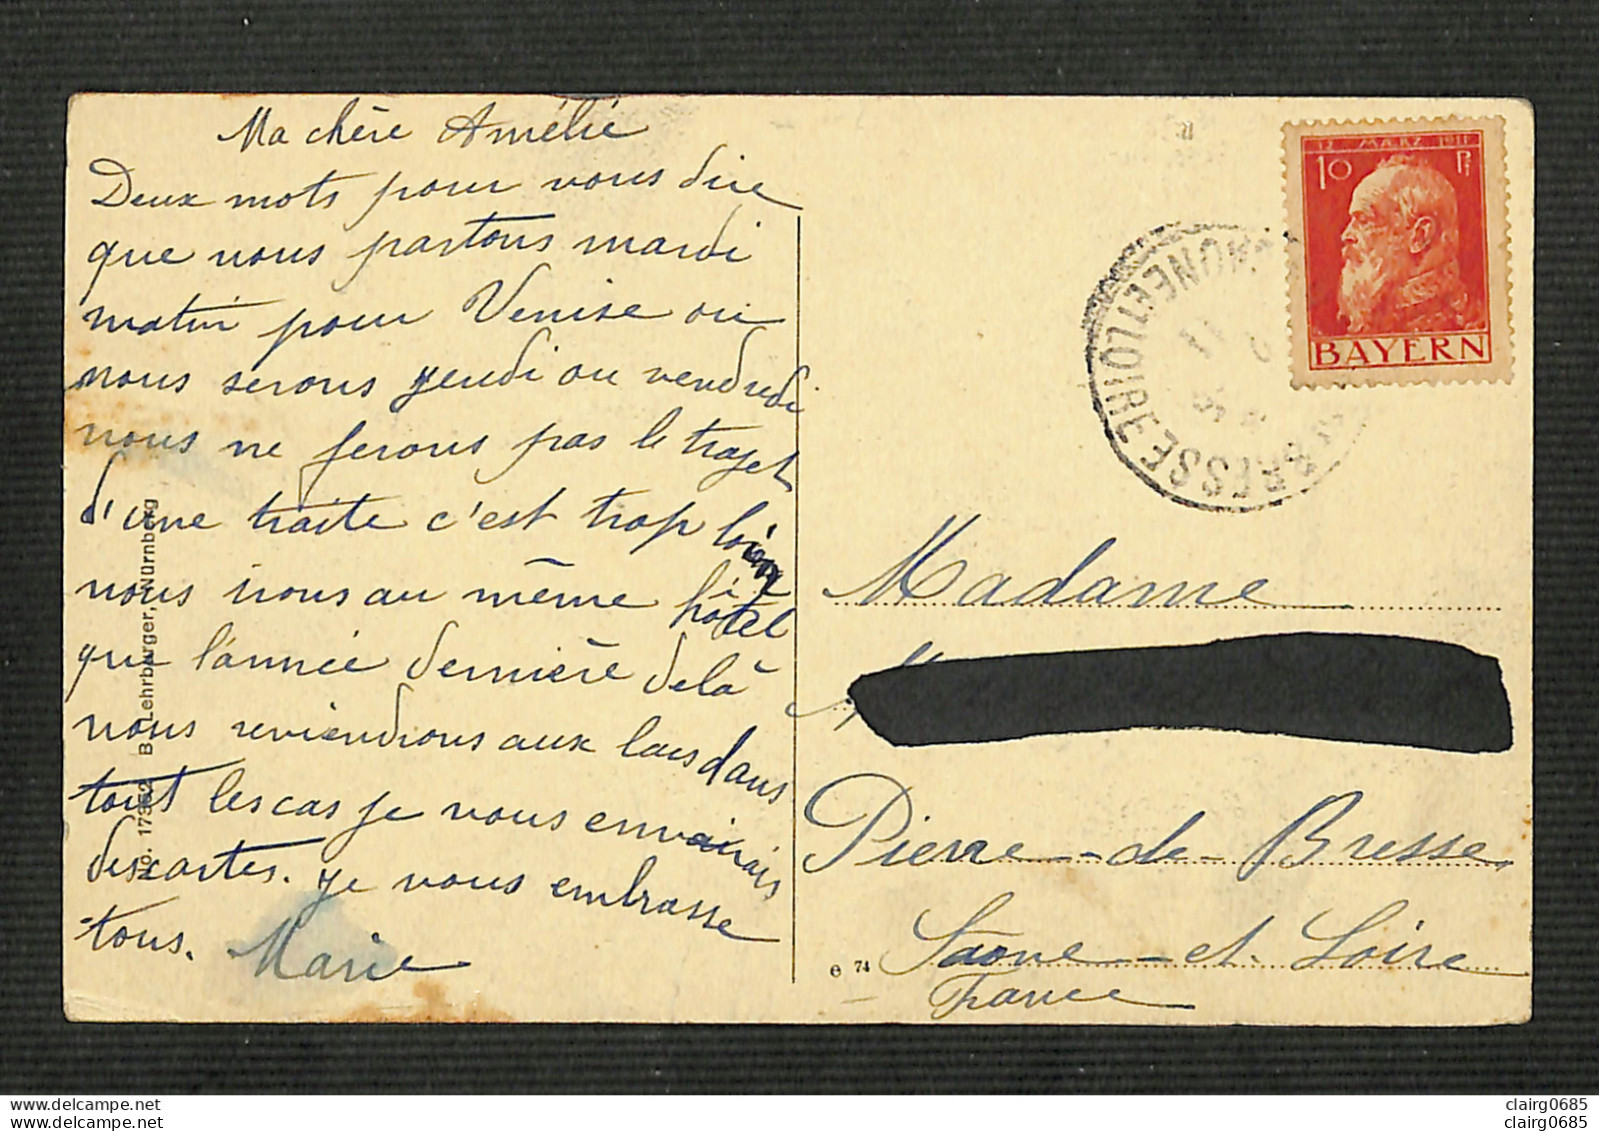 Ma chère Amélie
Deux mots pour vous dire
que nous partons mardi
matin pour Venise ou
nous serons jeudi ou vendredi
nous ne ferons pas le trajet
d'une traite c'est trop loin
nous irons au même hôtel
que l'année dernière delà
nous reviendrons aux lacs dans
tout les cas je vous enverrais
des cartes. je vous embrasse
tous. Marie
No. 17352 B. Lehrburger, Nürnberg
12 MÄRZ 1911
10 Pf
BAYERN
SAONE ET LOIRE
BRESSE
Madame
Pierre-de-Bresse
Saone-et-Loire
France
e 74
www.delcampe.net
www.delcampe.net
clairg0685
clairg0685